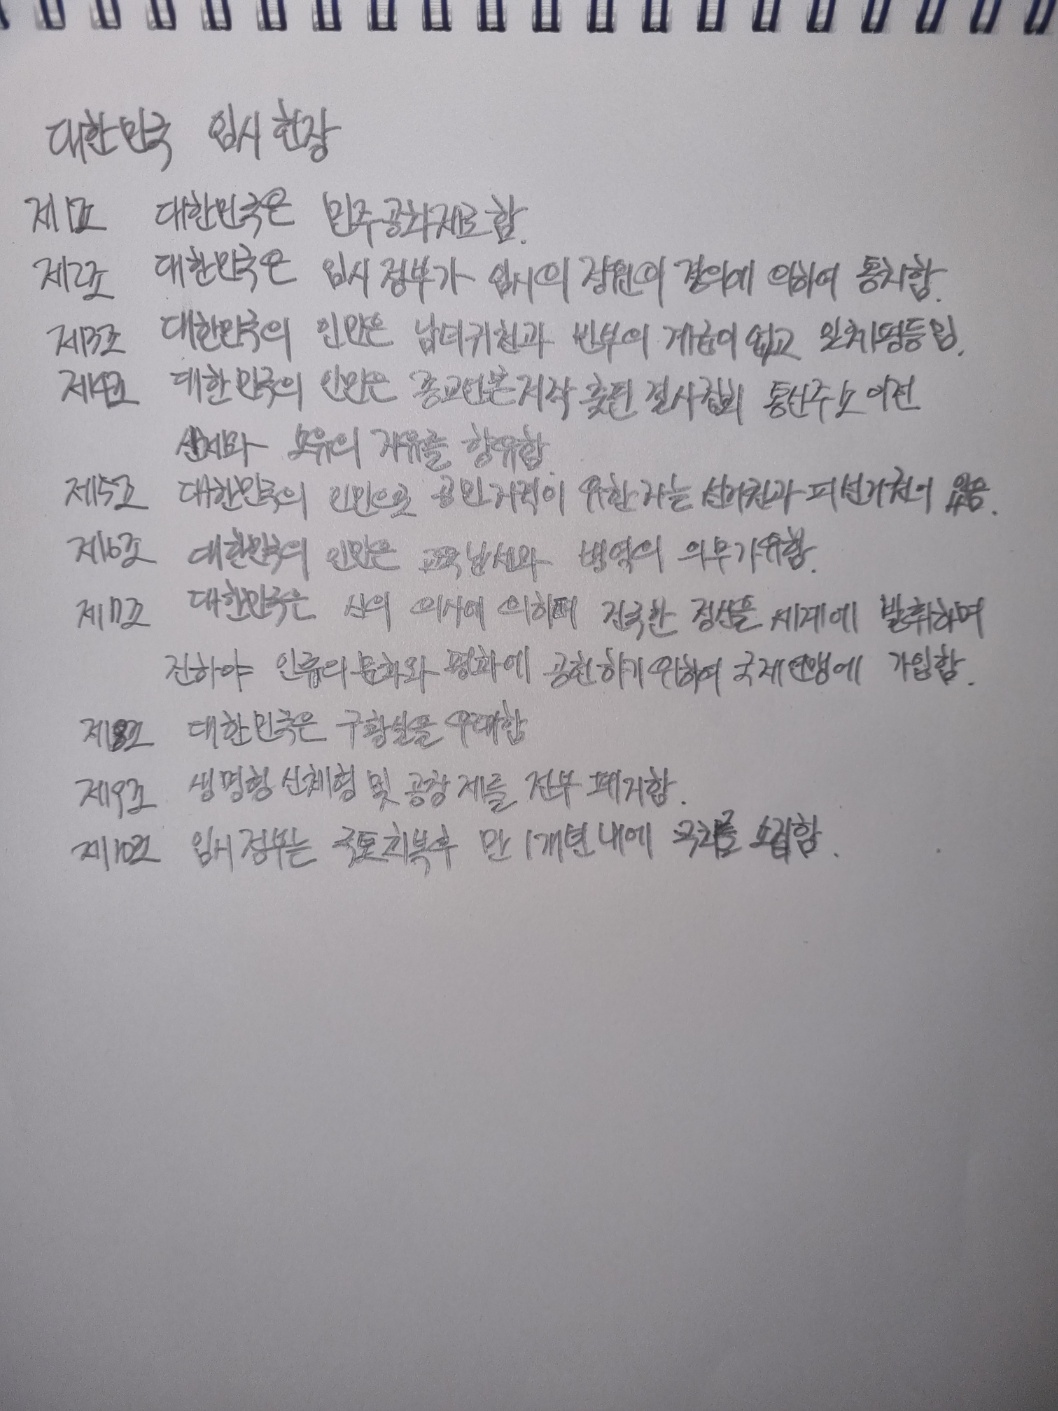 대한민국 임시헌장
제1조 대한민국은 민주공화제로 함.
제2조 대한민국은 임시정부가 임시의정원의 결의에 의하여 통치함.
제3조 대한민국의 인민은 남녀귀천과 빈부의 계급이 없고 일체평등임.
제4조 대한민국의 인민은 종교언론저작출판결사집회 통신주소이전
신체와 소유의 자유를 향유함.
제5조 대한민국의 인민으로 공민자격이 유한 자는 선거권과 피선거권이 있음.
제6조 대한민국의 인민은 교육납세와 병역의 의무가유함.
제7조 대한민국은 신의 의사에 의하며 건국한 정신을 세계에 발휘하며
진하야 인류의 문화와 평화에 공헌하기 위하여 국제연맹에 가입함.
제8조 대한민국은 구황실을 우대함
제9조 생명형 신체형 및 공창제를 전부 폐지함.
제10조 임시정부는 국토회복후 만 1개년내에 국회를 소집함.